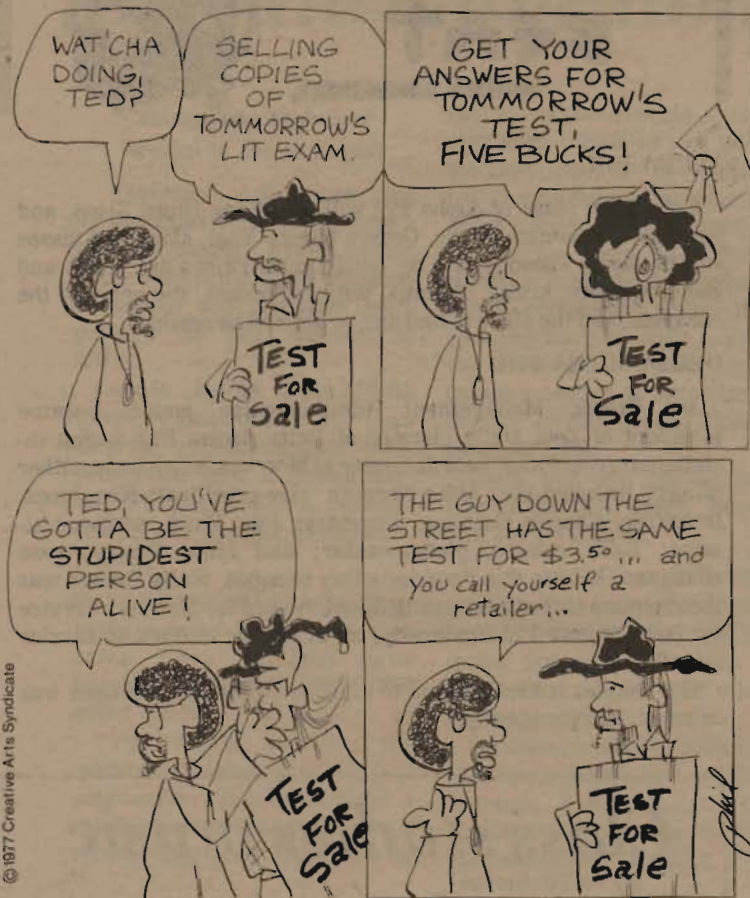 WAT'CHA
DOING,
TED?
SELLING
COPIES
OF
TOMMORROW'S
LIT EXAM.
TEST
FOR
Sale
GET YOUR
ANSWERS FOR
TOMMORROW'S
TEST,
FIVE BUCKS!
TEST
FOR
Sale
TED, YOU'VE
GOTTA BE THE
STUPIDEST
PERSON
ALIVE!
TEST
FOR
Sale
THE GUY DOWN THE
STREET HAS THE SAME
TEST FOR $3.50... and
you call yourself a
retailer...
TEST
FOR
Sale
phil
©1977 Creative Arts Syndicate